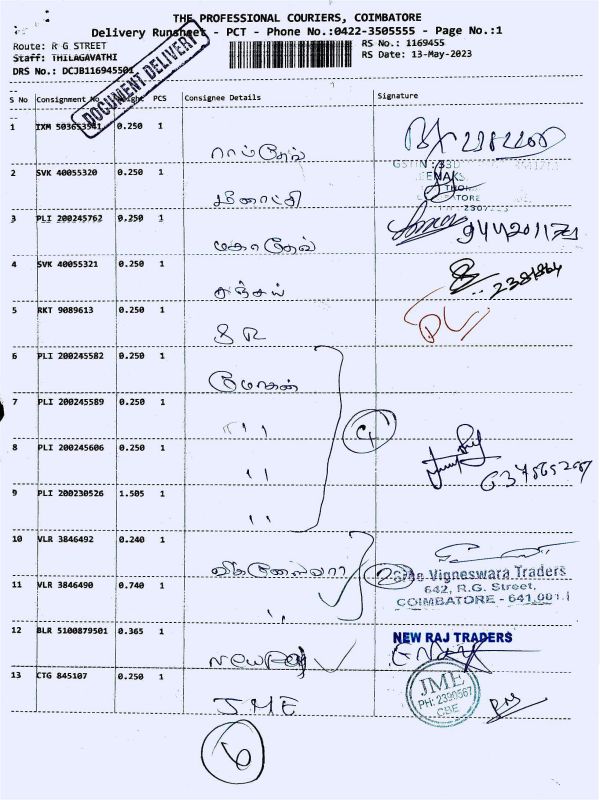 THE PROFESSIONAL COURIERS, COIMBATORE
Delivery Runsheet - PCT - Phone No.:0422-3505555 - Page No.:1
Route: R G STREET
RS No.: 1169455
Staff: THILAGAVATHI
RS Date: 13-May-2023
DRS No.: DCJB116945501
DOCUMENT DELIVERY
S No Consignment No Weight PCS Consignee Details Signature
1 IXM 503653941 0.250 1
ராம்தேவ்
2 SVK 40055320 0.250 1
மீனாட்சி
3 PLI 200245762 0.250 1
மகாதேவ்
4 SVK 40055321 0.250 1
சஞ்சய்
5 RKT 9089613 0.250 1
S R
6 PLI 200245582 0.250 1
மோகன்
7 PLI 200245589 0.250 1
" 4
8 PLI 200245606 0.250 1
"
9 PLI 200230526 1.505 1
"
10 VLR 3846492 0.240 1
விக்னேஸ்வரா 2
Sree Vigneswara Traders
642, R.G. Street,
COIMBATORE - 641 001.
11 VLR 3846490 0.740 1
"
12 BLR 5100879501 0.365 1
NEW RAJ TRADERS
New Raj
13 CTG 845107 0.250 1
JME
PH: 2390567
CBE
JME
6